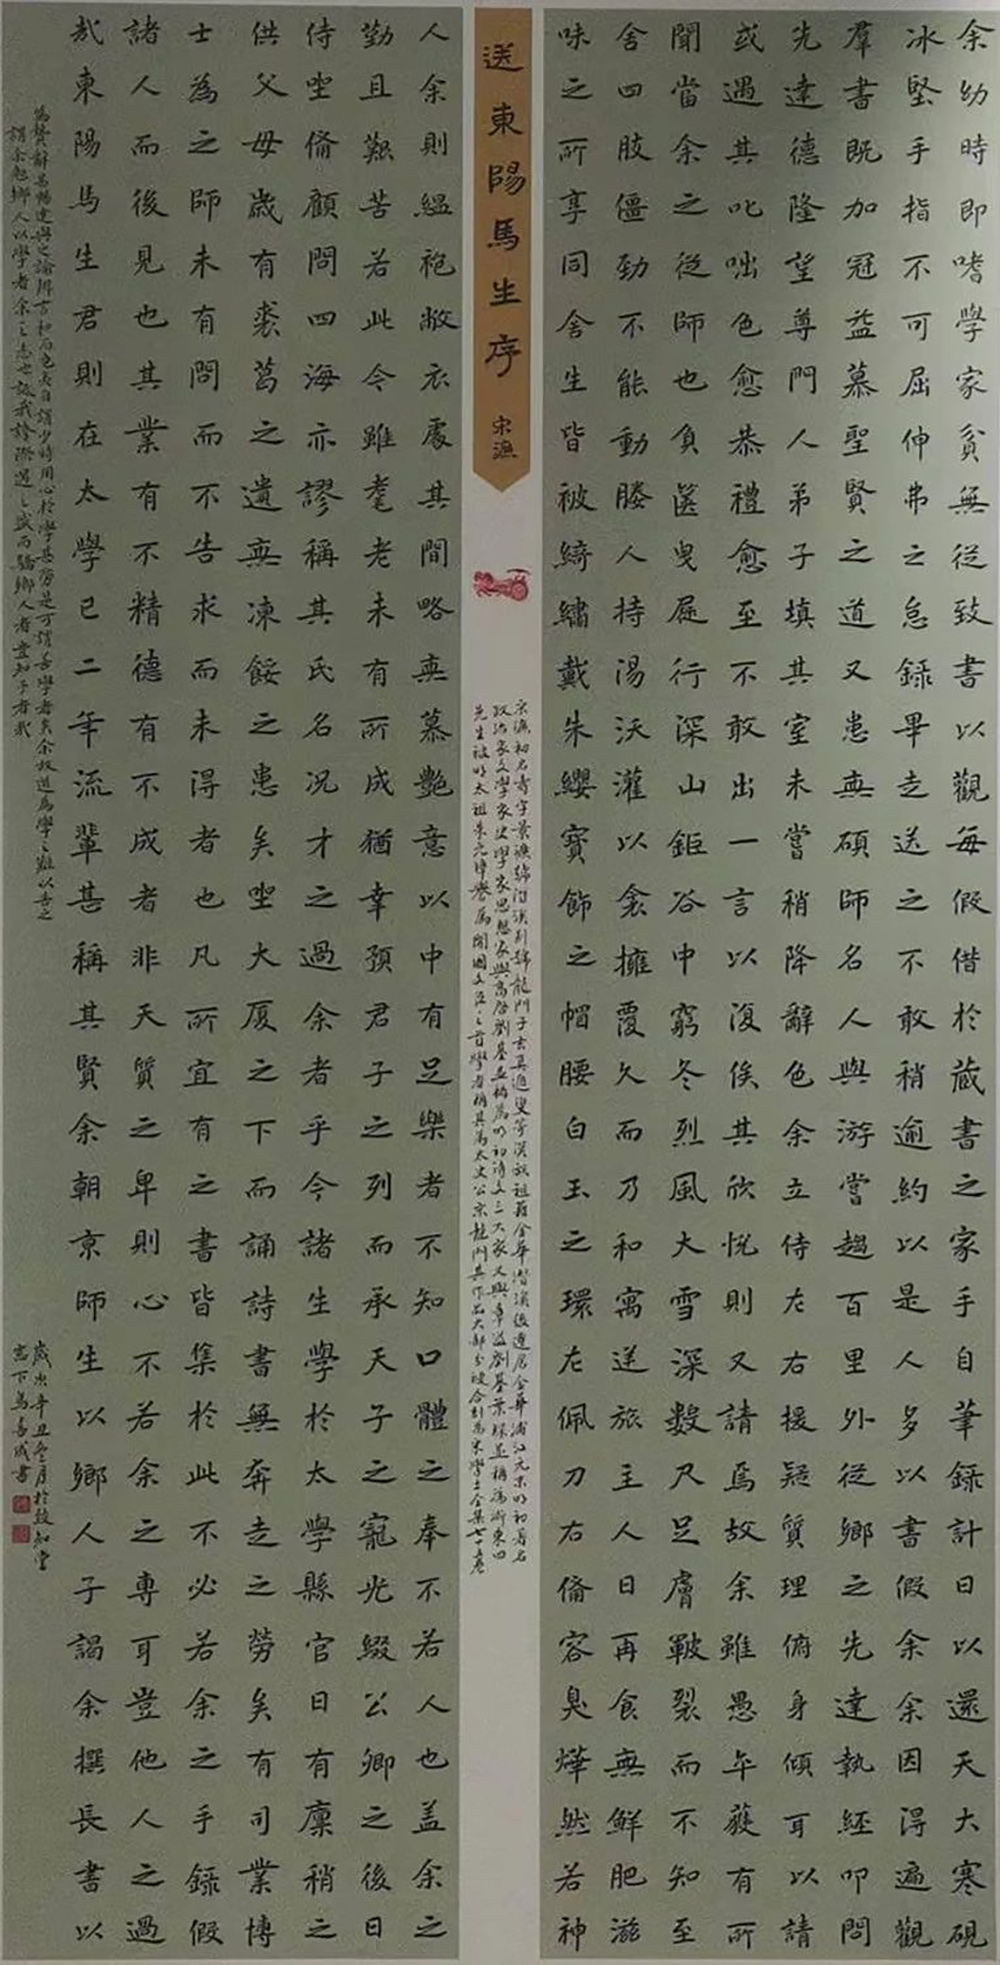 余幼時即嗜學家貧無從致書以觀每假借於蔵書之家手自筆錄計日以還天大寒硯
冰堅手指不可屈伸弗之怠錄畢走送之不敢稍逾約以是人多以書假余余因得遍觀
羣書既加冠益慕聖賢之道又患無碩師名人與游嘗趨百里外從鄉之先達執經叩問
先達德隆望尊門人弟子填其室未嘗稍降辭色余立侍左右援疑質理俯身傾耳以請
或遇其叱咄色愈恭禮愈至不敢出一言以復俟其欣悅則又請焉故余雖愚卒獲有所
聞當余之從師也負篋曳屣行深山鉅谷中窮冬烈風大雪深數尺足膚皸裂而不知至
舍四肢僵勁不能動媵人持湯沃灌以衾擁覆久而乃和寓逆旅主人日再食無鮮肥滋
味之所享同舍生皆被綺繡戴朱纓寶飾之帽腰白玉之環左佩刀右備容臭燁然若神
送東陽馬生序 宋濂
宋濂初名壽字景濂號潛溪別號龍門子玄真遁叟等漢族祖籍金華潛溪後遷居金華浦江元末明初著名
政治家文學家史學家思想家與高啓劉基並稱為明初詩文三大家又與章溢劉基葉琛並稱為浙東四
先生被明太祖朱元璋譽為開國文臣之首學者稱其為太史公宋龍門其作品大部分被合刻為宋學士全集七十五卷
人余則縕袍敝衣處其間略無慕艷意以中有足樂者不知口體之奉不若人也蓋余之
勤且艱苦若此今雖耄老未有所成猶幸預君子之列而承天子之寵光綴公卿之後日
侍坐備顧問四海亦謬稱其氏名況才之過余者乎今諸生學於太學縣官日有廩稍之
供父母歲有裘葛之遺無凍餒之患矣坐大厦之下而誦詩書無奔走之勞矣有司業博
士為之師未有問而不告求而未得者也凡所宜有之書皆集於此不必若余之手錄假
諸人而後見也其業有不精德有不成者非天質之卑則心不若余之專耳豈他人之過
哉東陽馬生君則在太學已二年流輩甚稱其賢余朝京師生以鄉人子謁余撰長書以
為贄辭甚暢達與之論辨言和而色夷自謂少時用心於學甚勞是可謂善學者矣余故道為學之難以告之
謂余勉鄉人以學者余之志也詆我誇際遇之盛而驕鄉人者豈知予者哉
歲次辛丑月於致知堂
窓下為善成書